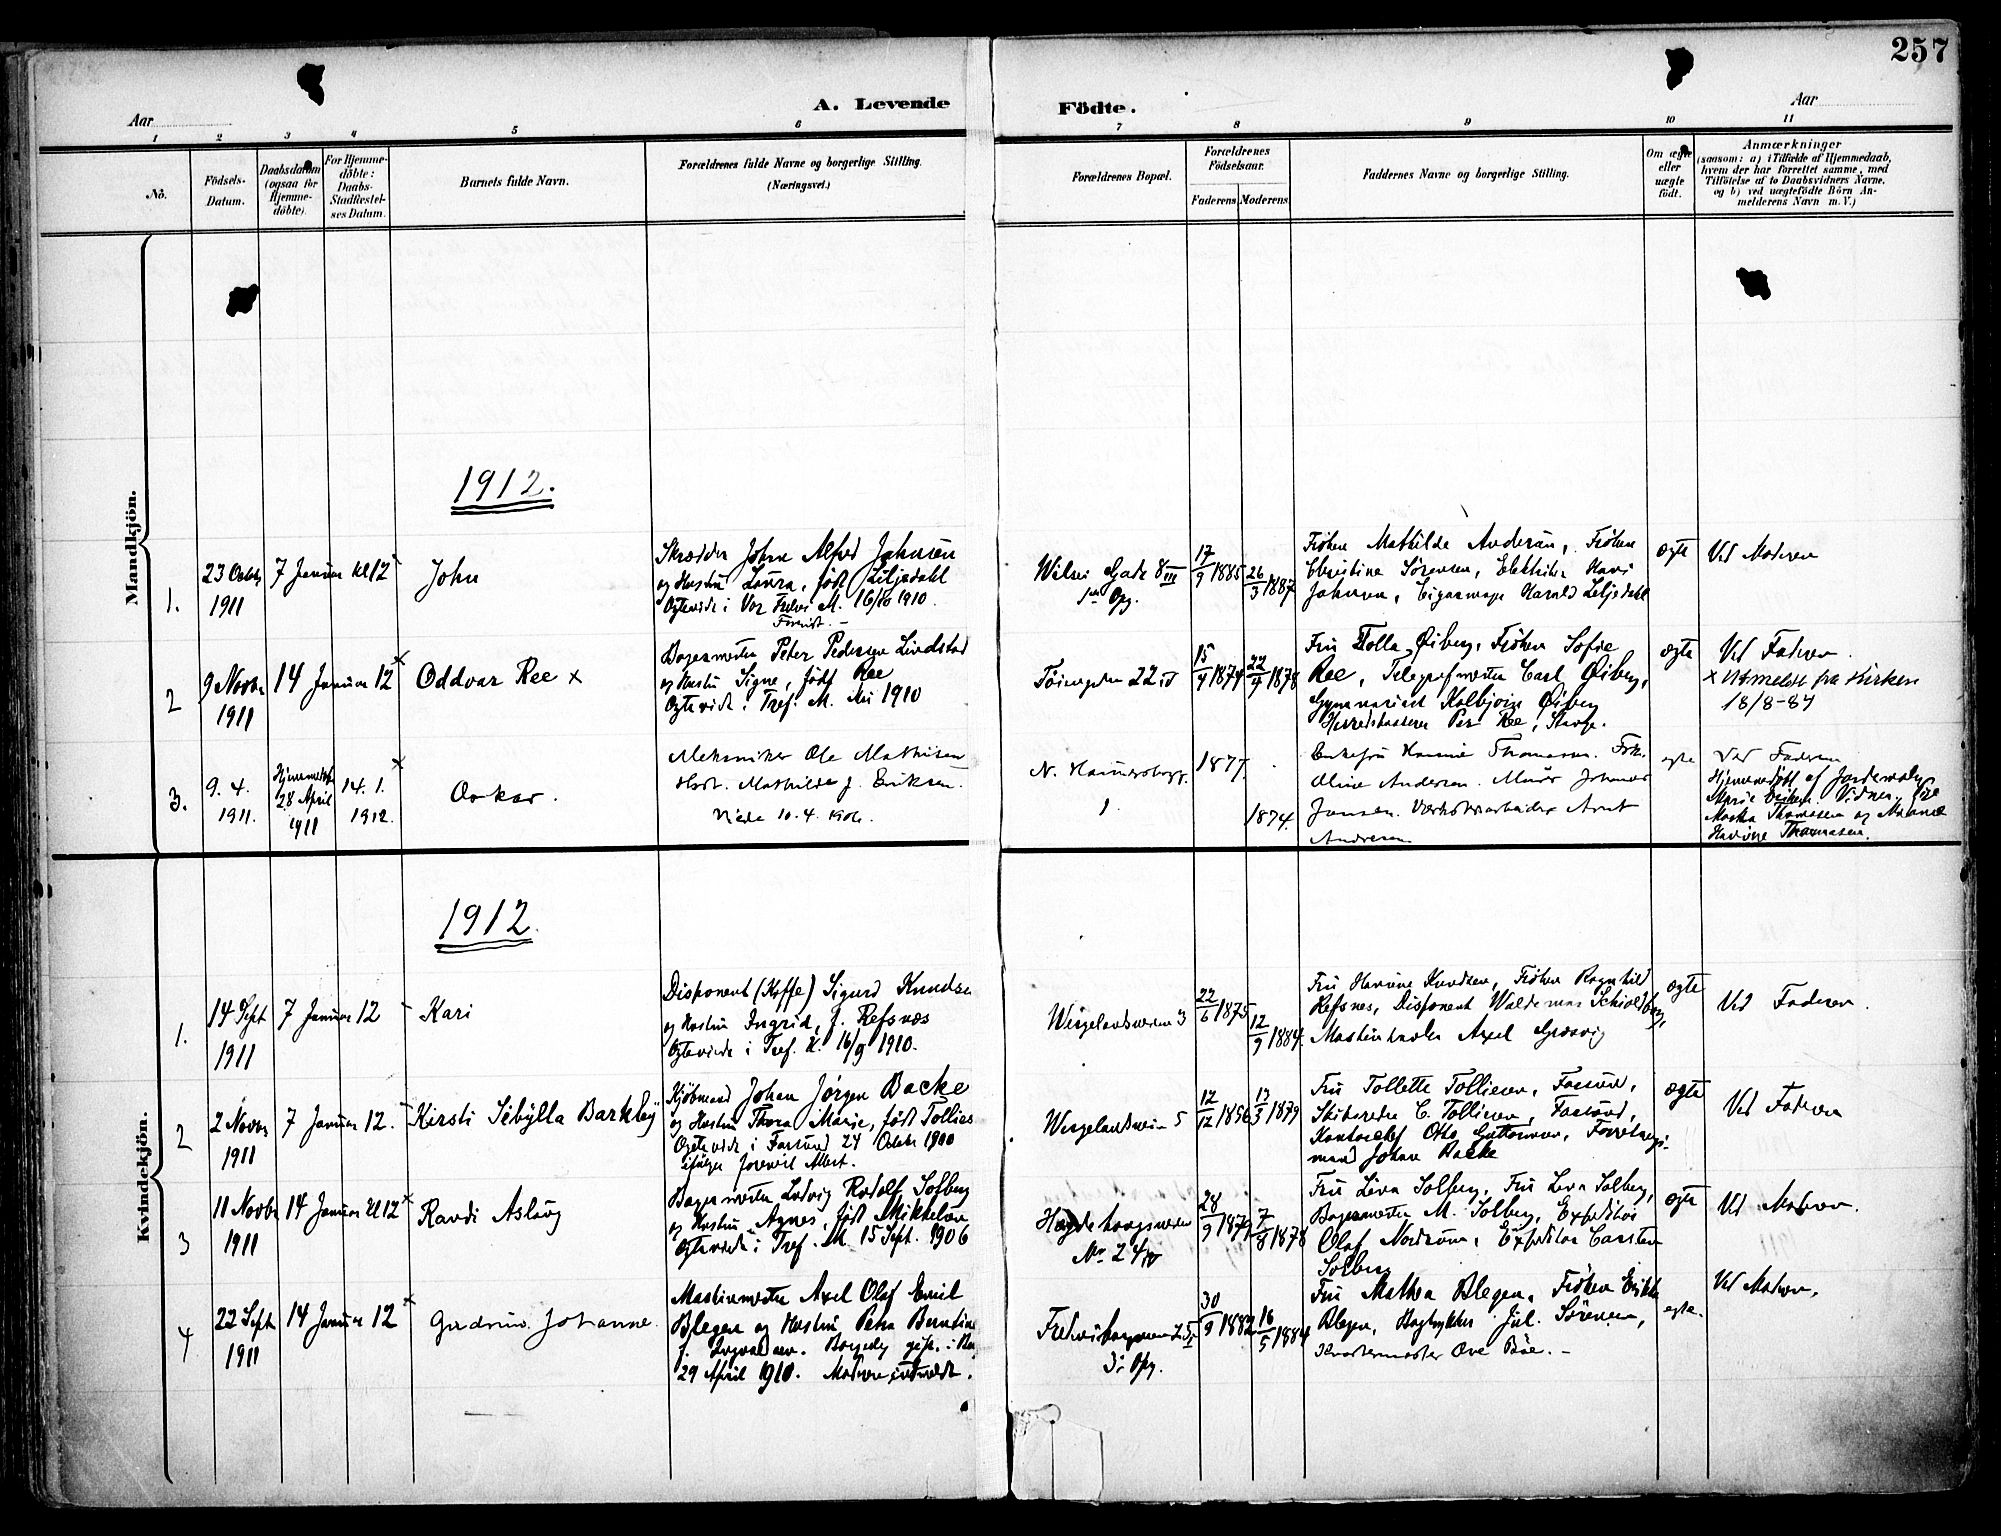 257
A. Levende Födte.
Aar
Aar
1 2 3 4 5 6 7 8 9 10 11
No.
Födsels-
Datum.
Daabsdatum
(ogsaa for
Hjemme-
døbte).
For Hjemme-
døbte:
Daabs-
Stadfæstel-
ses Datum.
Barnets fulde Navn.
Forældrenes fulde Navne og borgerlige Stilling.
(Næringsvei.)
Forældrenes Bopæl.
Forældrenes
Födselsaar.
Faderens Moderens
Faddernes Navne og borgerlige Stilling.
Om ægte
eller
uægte
født.
Anmærkninger
(saasom: a) i Tilfælde af Hjemmedaab,
hvem der har forrettet samme, med
Tilföielse af to Daabsvidners Navne,
og b) ved uægtefödte Börn An-
melderens Navn m. V.)
Mandkjön.
1912.
1.
23 Octob
1911
7 Januar kl 12
John
Skrædder John Alfred Johnsen
og Hustru Laura, født Liljedahl
Ægteviede i Vor Frelsers M. 16/10 1910.
8 III
1ste Opg.
17/9 1885
26/3 1887
Frøken Mathilde Andersen, Frøken
Christine Sørensen, Elektriker Hans
Johnsen, Cigarmager Harald Liljedahl
ægte
Ved Moderen
2
9 Novbr
1911
14 Januar 12 x
Oddvar Ree x
Bagermester Peter Pedersen Lindstad
og Hustru Signe, født Ree
Ægteviede i Tref. M. Mai 1910
Tøiengaten 22
15/4 1874
22/9 1878
Fru Tolla Øiberg, Frøken Sofie
Ree, Telegrafmester Carl Øiberg,
Gymnasiast Kolbjørn Øiberg
Herredskasserer Per Ree, Stange.
ægte
Ved Faderen.
x Utmeldt fra Kirken
18/8-84
3.
9. 4.
1911.
Hjemmedøbt
28 April
1911
14. 1.
1912. x
Oskar.
Mekaniker Ole Mathisen
Hust. Mathilde f. Eriksen.
Viede 10. 4. 1906.
1.
1877
1874.
Enkefru Hannie Thomasen. Frk.
Oline Andersen. Murer Johannes
Jansen. Verkstedsarbeider Arnt
Andresen
ægte
Ved Faderen
Hjemmedøbt af Jordemoder
Marie Eriksen. Vidner, Fru
Thomasen og
Thomasen.
Kvindekjön.
1912.
1.
14 Sept
1911
7 Januar 12
Kari
Disponent (Kaffe) Sigurd Knudsen
og Hustru Ingrid, f. Refsnæs
Ægteviede i Tref. K. 16/9 1910.
Wergelandsveien 3
22/6 1875
12/9 1884.
Fru Havine Knudsen, Frøken Ragnhild
Refsnes, Disponent Waldemar Schioldborg,
Maskinhandler Axel Grøsvig
ægte
Ved Faderen.
2
2 Novbr
1911
7 Januar 12.
Kirsti Sibylla Barkley
Kjøbmand Johan Jørgen Backe
og Hustru Thora Marie, født Tollefsen
Ægteviede i Farsund 24 Octobr 1900
ifølge forevist Attest.
Wergelandsveien 5
12/12 1856
1879
Fru Tollette Tollisen, Farsund,
Skibsreder C. Tollisen, Farsund,
Kontorchef Otto Guttormsen, Forretnings-
mand Johan Backe
ægte
Ved Faderen
3
11 Novbr
1911
14 Januar kl 12 x
Randi Aslaug
Bagermester Ludvig Rudolf Solberg
og Hustru Agnes, født Mikkelsen
Ægteviede i Tref. M. 15 Sept. 1906
Hegdehaugsveien
No 24 IV
28/9 1879
7/8 1878
Fru Lina Solberg, Fru Lena Solberg,
Bagermester M. Solberg, Expeditør
Olaf Nordrum, Expeditør Carsten
Solberg
ægte
Ved Moderen.
4
22 Sept
1911
14 Januar 12 x
Gudrun Johanne
Maskinmester Axel Olaf Emil
Blegen og Hustru Petra Bentine
f. Ingvaldsen. Borgerlig gift i
29 April 1910. Moderen utmeldt.
3die Opg.
30/9 1882
16/5 1884
Fru Mathea Blegen, Frøken Erikka
Blegen, Bogtrykker Jul. Sørensen,
Kvartermester Ove Bøe. -
egte.
Ved Moderen.